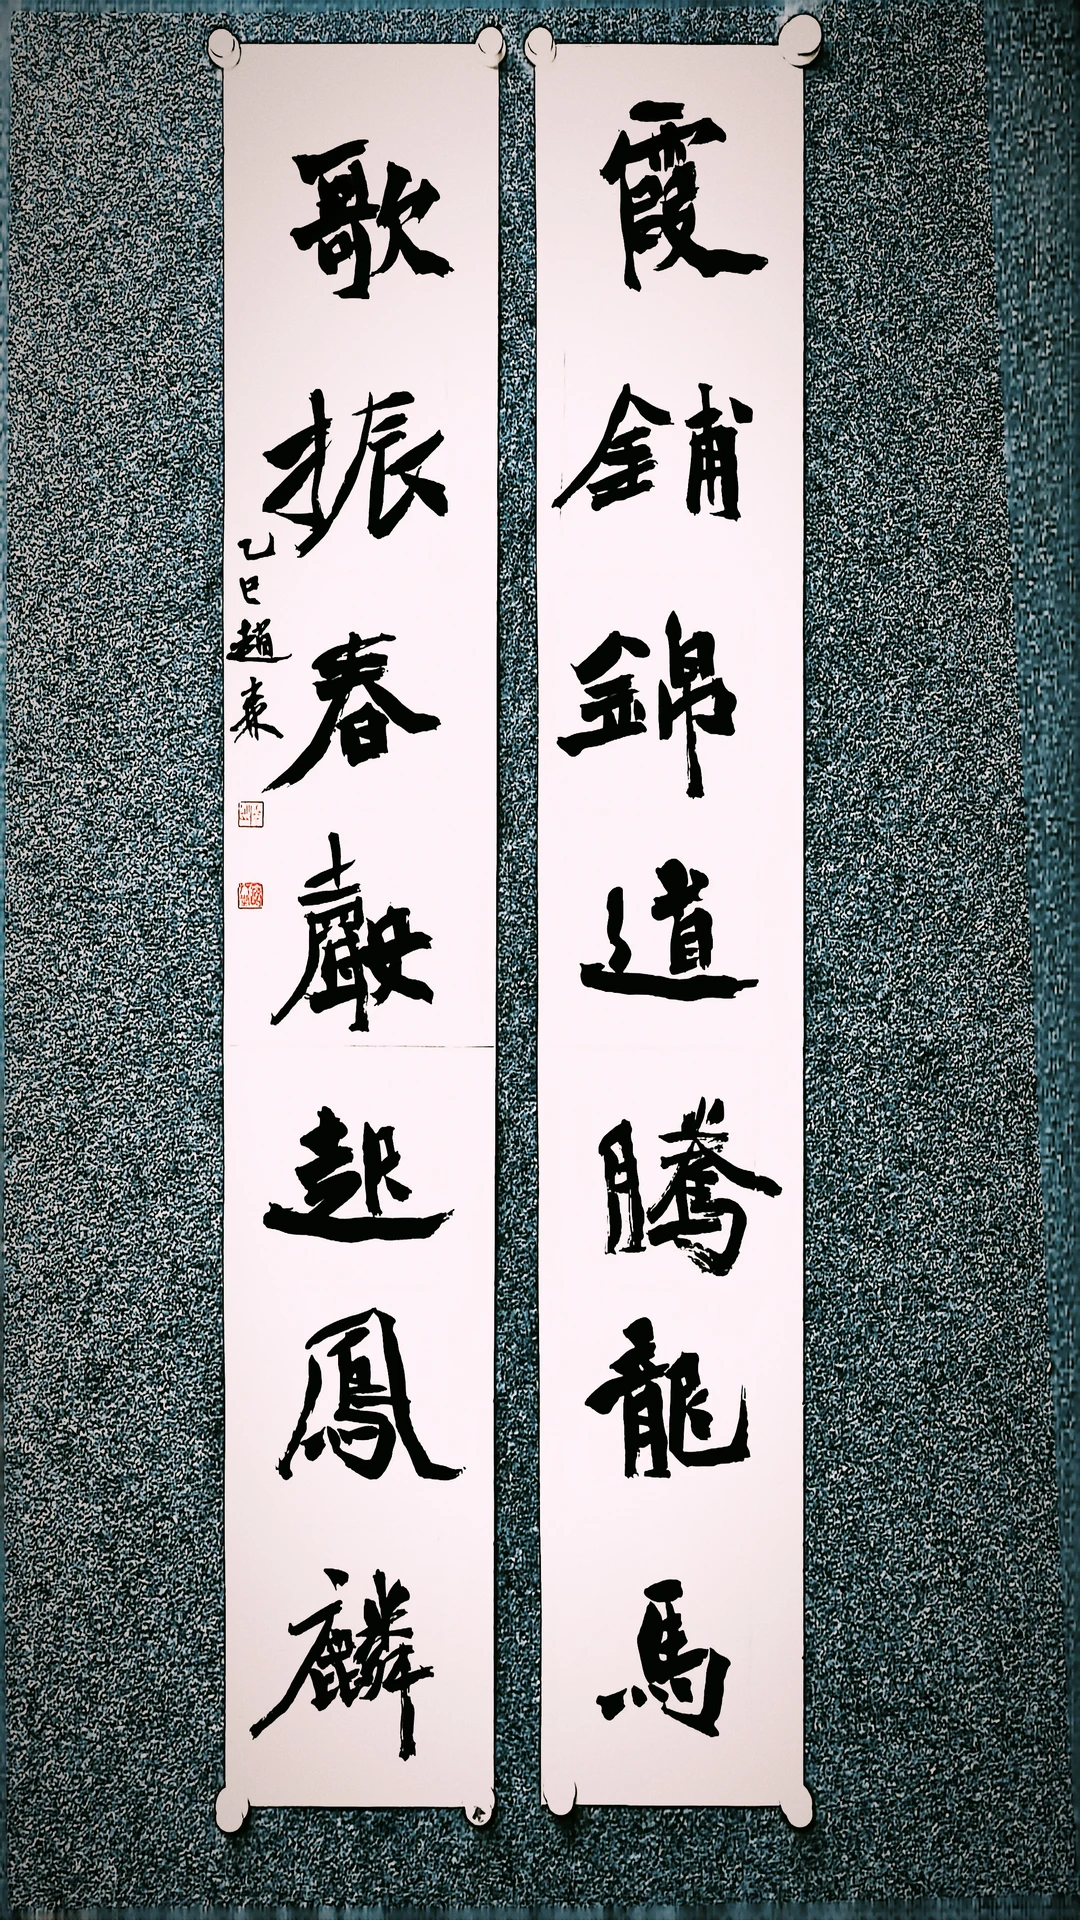 霞鋪錦道騰龍馬
歌振春聲起鳳麟
乙巳趙森